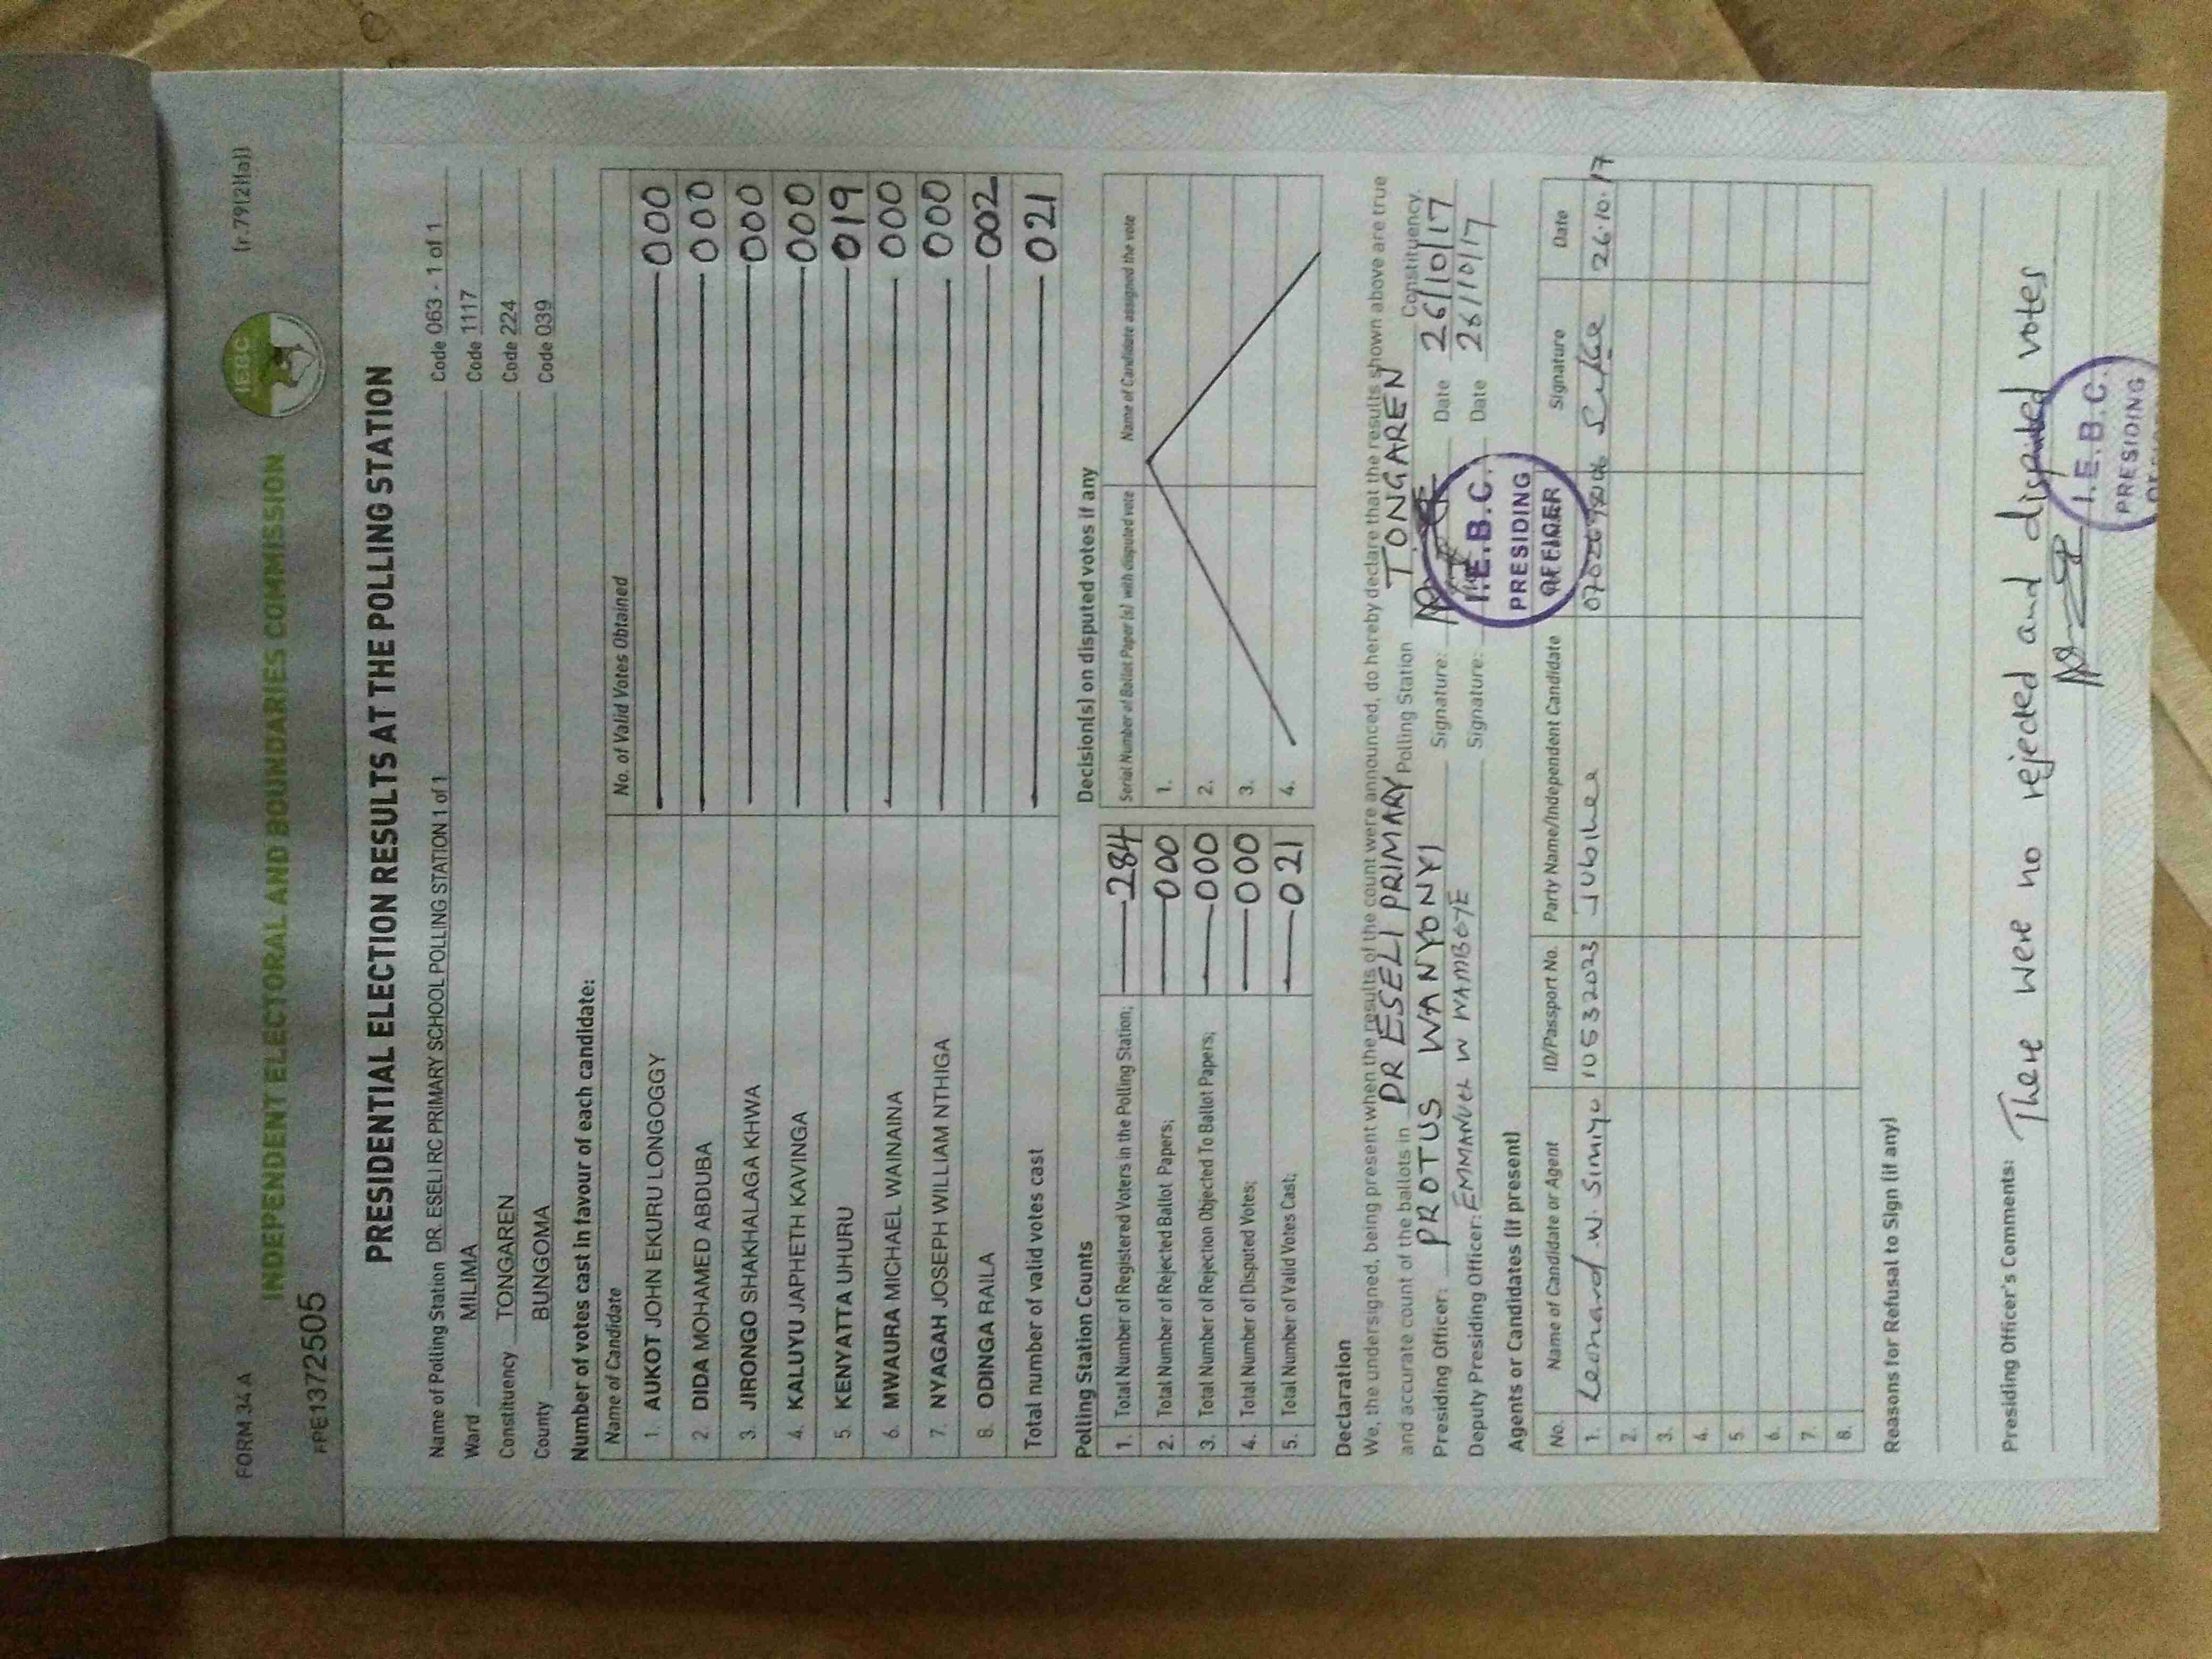 FORM 34 A
(r.79(2)(a))
IEBC
INDEPENDENT ELECTORAL AND BOUNDARIES COMMISSION
FPE1372505
PRESIDENTIAL ELECTION RESULTS AT THE POLLING STATION
Name of Polling Station DR. ESELI RC PRIMARY SCHOOL POLLING STATION 1 of 1 Code 063 - 1 of 1
Ward MILIMA Code 1117
Constituency TONGAREN Code 224
County BUNGOMA Code 039
Number of votes cast in favour of each candidate:
Name of Candidate No. of Valid Votes Obtained
1. AUKOT JOHN EKURU LONGOGGY 000
2. DIDA MOHAMED ABDUBA 000
3. JIRONGO SHAKHALAGA KHWA 000
4. KALUYU JAPHETH KAVINGA 000
5. KENYATTA UHURU 019
6. MWAURA MICHAEL WAINAINA 000
7. NYAGAH JOSEPH WILLIAM NTHIGA 000
8. ODINGA RAILA 002
Total number of valid votes cast 021
Polling Station Counts
1. Total Number of Registered Voters in the Polling Station; 284
2. Total Number of Rejected Ballot Papers; 000
3. Total Number of Rejection Objected To Ballot Papers; 000
4. Total Number of Disputed Votes; 000
5. Total Number of Valid Votes Cast; 021
Decision(s) on disputed votes if any
Serial Number of Ballot Paper (s) with disputed vote Name of Candidate assigned the vote
1.
2.
3.
4.
Declaration
We, the undersigned, being present when the results of the count were announced, do hereby declare that the results shown above are true
and accurate count of the ballots in DR ESELI PRIMARY Polling Station TONGAREN Constituency.
Presiding Officer: PROTUS WANYONYI Signature: Date 26/10/17
Deputy Presiding Officer: EMMANUEL W WAMBOYE Signature: Date 26/10/17
I.E.B.C.
PRESIDING
OFFICER
Agents or Candidates (if present)
No. Name of Candidate or Agent ID/Passport No. Party Name/Independent Candidate Signature Date
1. Leonard W. Simiyu 10532023 Jubilee 26.10.17
2.
3.
4.
5.
6.
7.
8.
Reasons for Refusal to Sign (if any)
Presiding Officer's Comments: There were no rejected and disputed votes
I.E.B.C.
PRESIDING